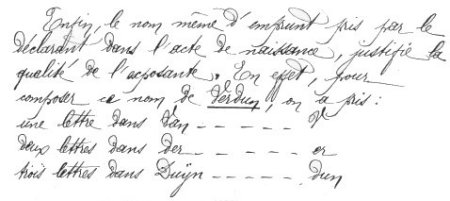 Enfin, le nom même d'emprunt pris par le
déclarant dans l'acte de naissance, justifie la
qualité de l'exposante. En effet, pour
composer ce nom de Verdun, on a pris :
une lettre dans Van - - - - - V
deux lettres dans der - - - - - - er
trois lettres dans Duÿn - - - - - dun